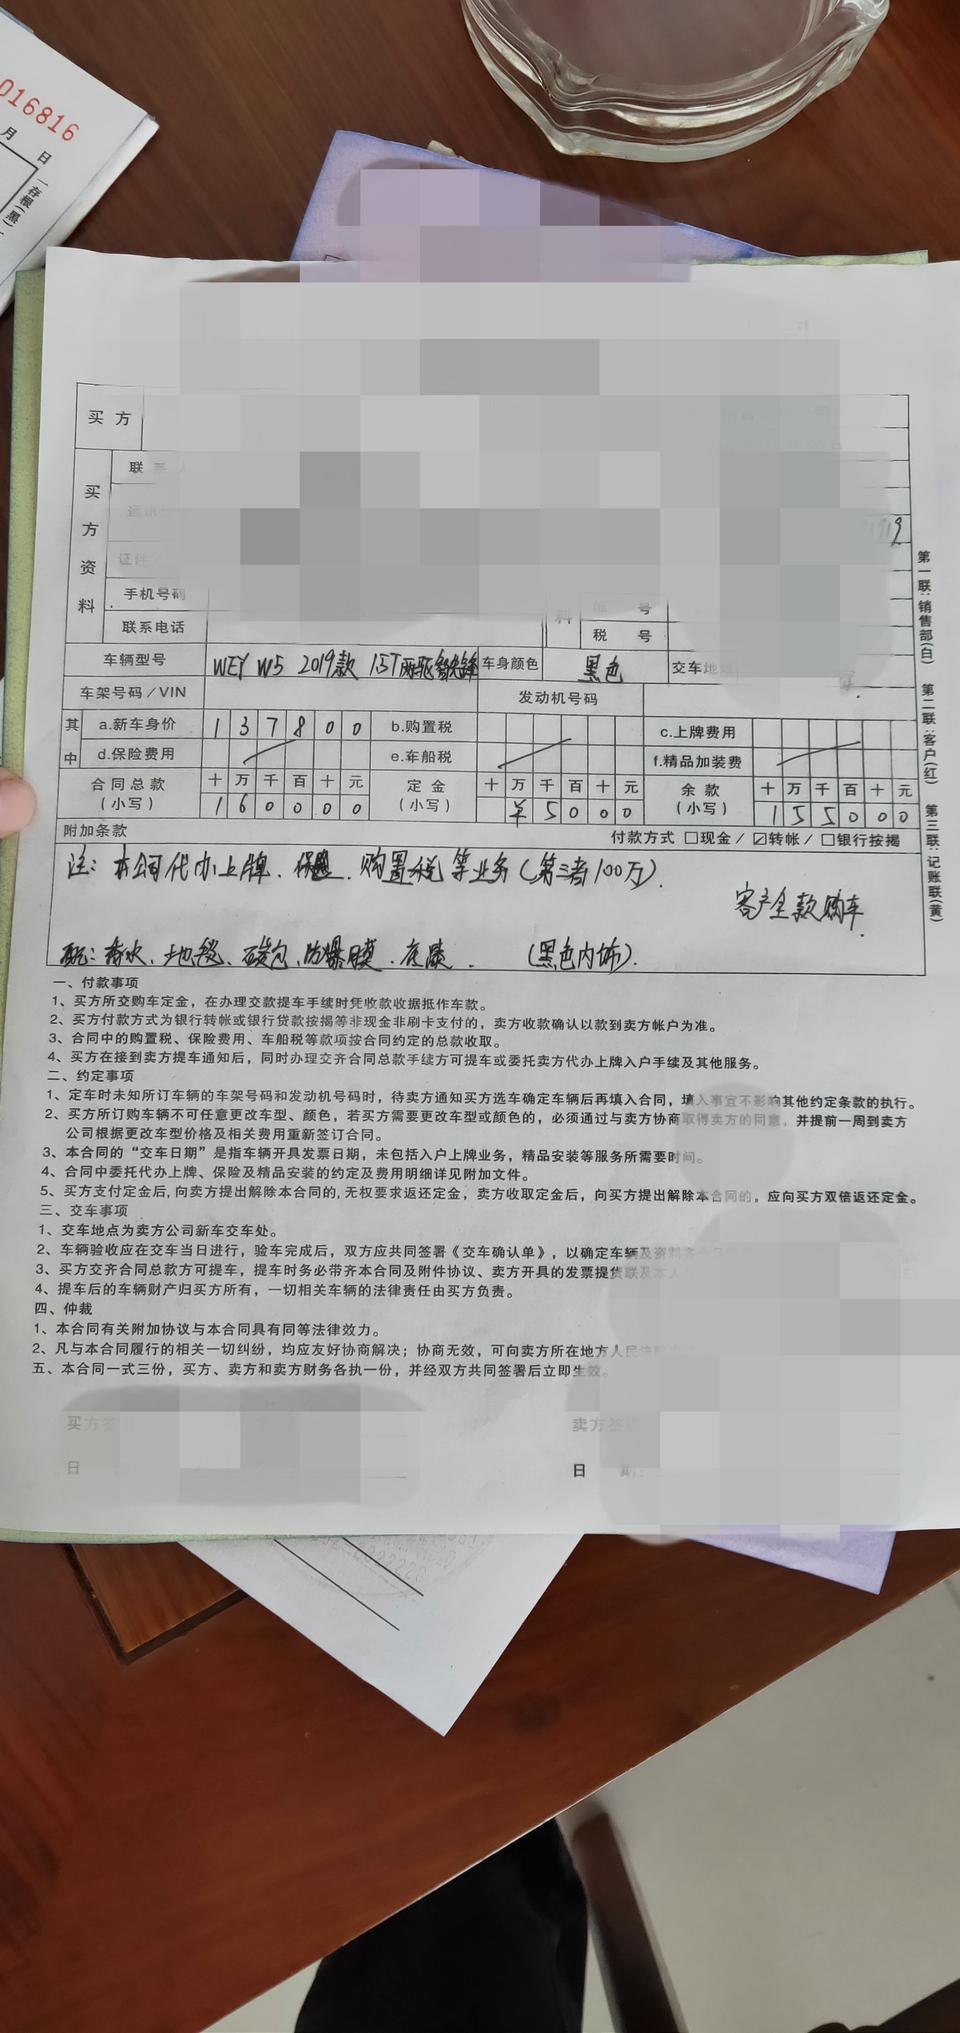 016816
月 日
一存根(黑)
买方
买方资料
手机号码
联系电话
账 号
税 号
车辆型号 WEY 2019款 1.5T两驱 车身颜色 黑色 交车地
车架号码/VIN 发动机号码
其中 a.新车身价 137800 b.购置税 c.上牌费用
d.保险费用 e.车船税 f.精品加装费
合同总款(小写) 十万千百十元 160000 定金(小写) 十万千百十元 ¥5000 余款(小写) 十万千百十元 155000
附加条款 付款方式 □现金/ ☑转帐/ □银行按揭
注: 本公司代办上牌、保险、购置税等业务(第三者100万).
客户全款购车.
香水、地毯、防爆膜. (黑色内饰).
第一联:销售部(白) 第二联:客户(红) 第三联:记账联(黄)
一、付款事项
1、买方所交购车定金，在办理交款提车手续时凭收款收据抵作车款。
2、买方付款方式为银行转帐或银行贷款按揭等非现金非刷卡支付的，卖方收款确认以款到卖方帐户为准。
3、合同中的购置税、保险费用、车船税等款项按合同约定的总款收取。
4、买方在接到卖方提车通知后，同时办理交齐合同总款手续方可提车或委托卖方代办上牌入户手续及其他服务。
二、约定事项
1、定车时未知所订车辆的车架号码和发动机号码时，待卖方通知买方选车确定车辆后再填入合同，填入事宜不影响其他约定条款的执行。
2、买方所订购车辆不可任意更改车型、颜色，若买方需要更改车型或颜色的，必须通过与卖方协商取得卖方的同意，并提前一周到卖方
公司根据更改车型价格及相关费用重新签订合同。
3、本合同的“交车日期”是指车辆开具发票日期，未包括入户上牌业务，精品安装等服务所需要时间。
4、合同中委托代办上牌、保险及精品安装的约定及费用明细详见附加文件。
5、买方支付定金后,向卖方提出解除本合同的,无权要求返还定金，卖方收取定金后，向买方提出解除本合同的，应向买方双倍返还定金。
三、交车事项
1、交车地点为卖方公司新车交车处。
2、车辆验收应在交车当日进行，验车完成后，双方应共同签署《交车确认单》，以确定车辆及资料
3、买方交齐合同总款方可提车，提车时务必带齐本合同及附件协议、卖方开具的发票提货联及本人
4、提车后的车辆财产归买方所有，一切相关车辆的法律责任由买方负责。
四、仲裁
1、本合同有关附加协议与本合同具有同等法律效力。
2、凡与本合同履行的相关一切纠纷，均应友好协商解决；协商无效，可向卖方所在地方人民
五、本合同一式三份，买方、卖方和卖方财务各执一份，并经双方共同签署后立即生效。
买方签 卖方签
日 日 期: